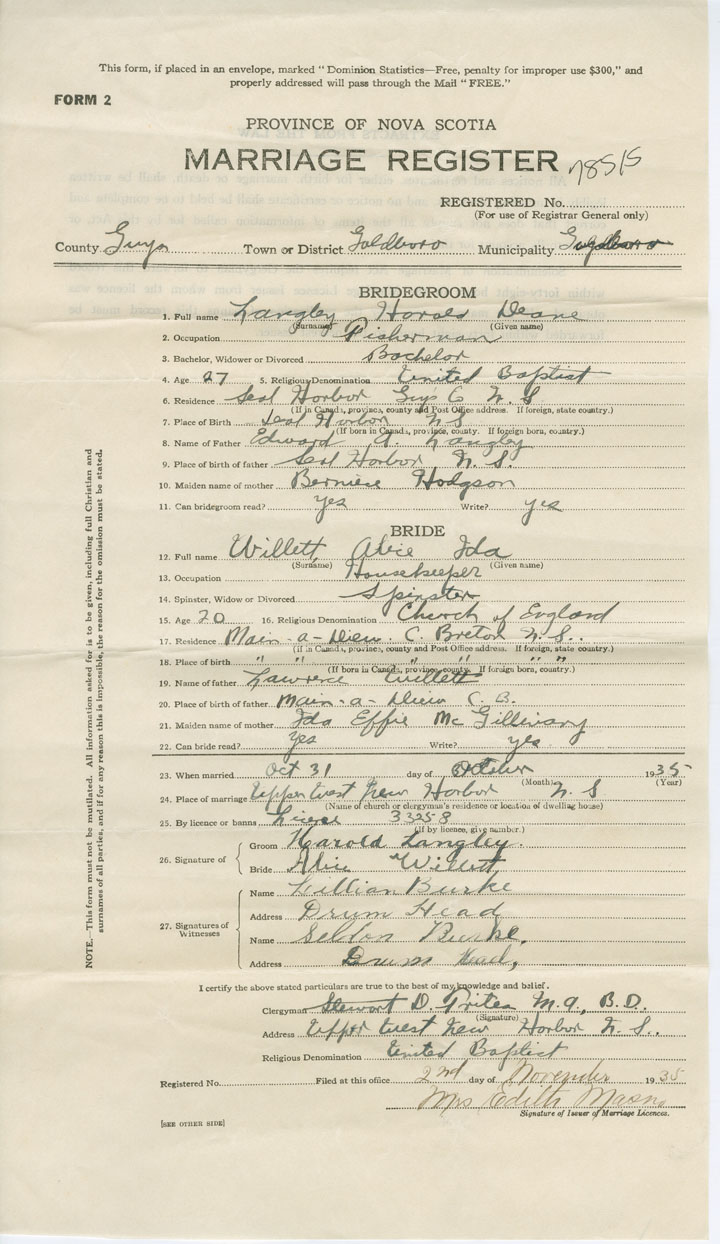 This form, if placed in an envelope, marked "Dominion Statistics—Free, penalty for improper use $300," and
properly addressed will pass through the Mail "FREE."
FORM 2
PROVINCE OF NOVA SCOTIA
MARRIAGE REGISTER 78515
REGISTERED No.
(For use of Registrar General only)
County Guys Town or District Goldboro Municipality
BRIDEGROOM
1. Full name Langley Harold Deane
(Surname) (Given name)
2. Occupation Fisherman
3. Bachelor, Widower or Divorced Bachelor
4. Age 27 5. Religious Denomination United Baptist
6. Residence Seal Harbor Guys Co N.S
(If in Canada, province, county and Post Office address. If foreign, state country.)
7. Place of Birth Seal Harbor N S
(If born in Canada, province, county. If foreign born, country.)
8. Name of Father Edward A. Langley
9. Place of birth of father Seal Harbor N. S.
10. Maiden name of mother Berniese Hodgson
11. Can bridegroom read? yes Write? yes
BRIDE
12. Full name Willett Alice Ida
(Surname) (Given name)
13. Occupation Housekeeper
14. Spinster, Widow or Divorced Spinster
15. Age 20 16. Religious Denomination Church of England
17. Residence Main-a-Dieu C. Breton N.S..
(If in Canada, province, county and Post Office address. If foreign, state country.)
18. Place of birth " " " " " "
(If born in Canada, province, county. If foreign born, country.)
19. Name of father Lawrence Willett
20. Place of birth of father Main-a-Dieu C. B.
21. Maiden name of mother Ida Effie McGillivary
22. Can bride read? Yes Write? yes
23. When married Oct 31 day of October 1935
(Month) (Year)
24. Place of marriage Upper West New Harbor N. S
(Name of church or clergyman's residence or location of dwelling house)
25. By licence or banns 33258
(If by licence, give number.)
26. Signature of
Groom Harold Langley.
Bride Alice Willett
27. Signatures of Witnesses
Name Lillian Burke
Address Drum Head
Name Seldon Burke,
Address Drum Head,
I certify the above stated particulars are true to the best of my knowledge and belief.
Clergyman Stewart D. M.A., B.D.
(Signature)
Address Upper West New Harbor N. S..
Religious Denomination United Baptist
Registered No. Filed at this office 2nd day of November 1935
Mrs Edith
Signature of Issuer of Marriage Licences.
[SEE OTHER SIDE]
NOTE.—This form must not be mutilated. All information asked for is to be given, including full Christian and
surnames of all parties, and if for any reason this is impossible, the reason for the omission must be stated.